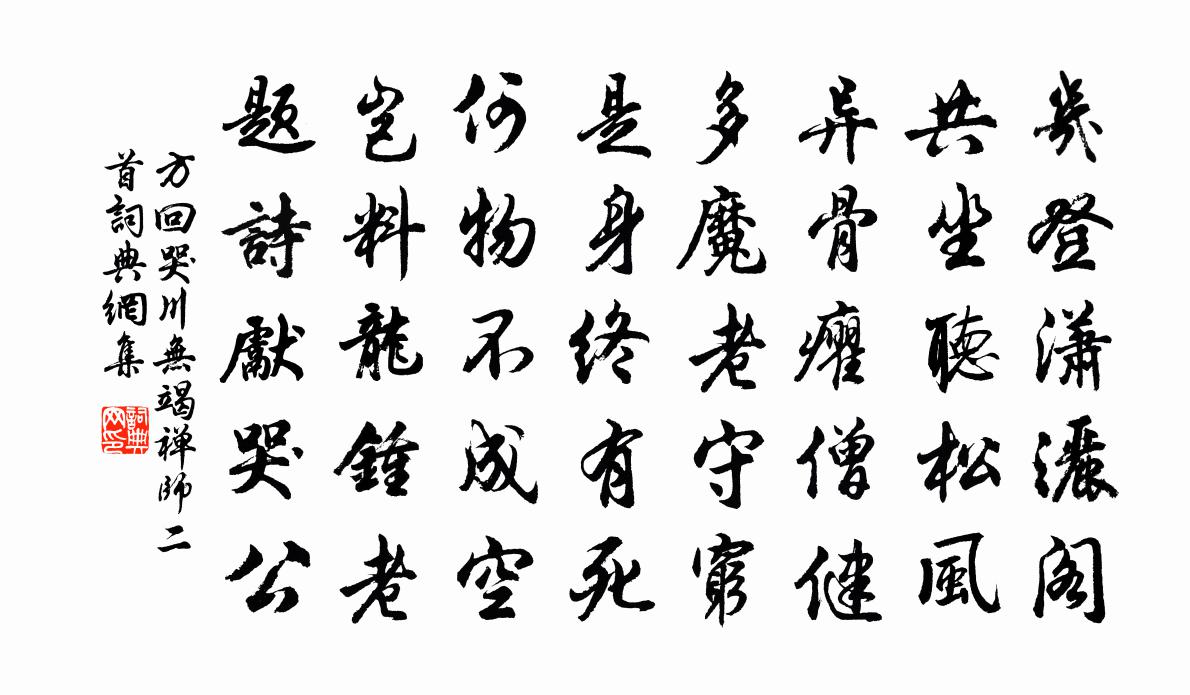 幾登瀟灑閣
共坐聽松風
异骨癯僧健
多魔老守窮
是身終有死
何物不成空
豈料龍鍾老
題詩獻哭公
方回哭川無竭禅師二
首詞典網集
詞典
网印